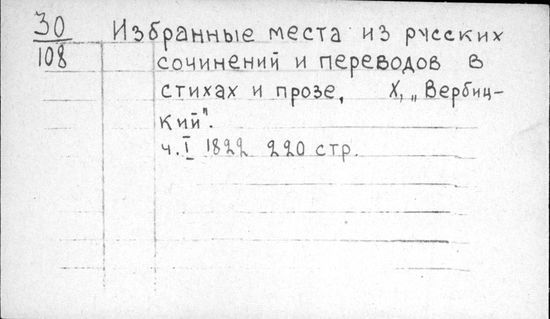 30 Избранные места из русских
108 сочинений и переводов в
стихах и прозе, Х, „Вербиц-
кий".
ч. I 1822 220 стр.